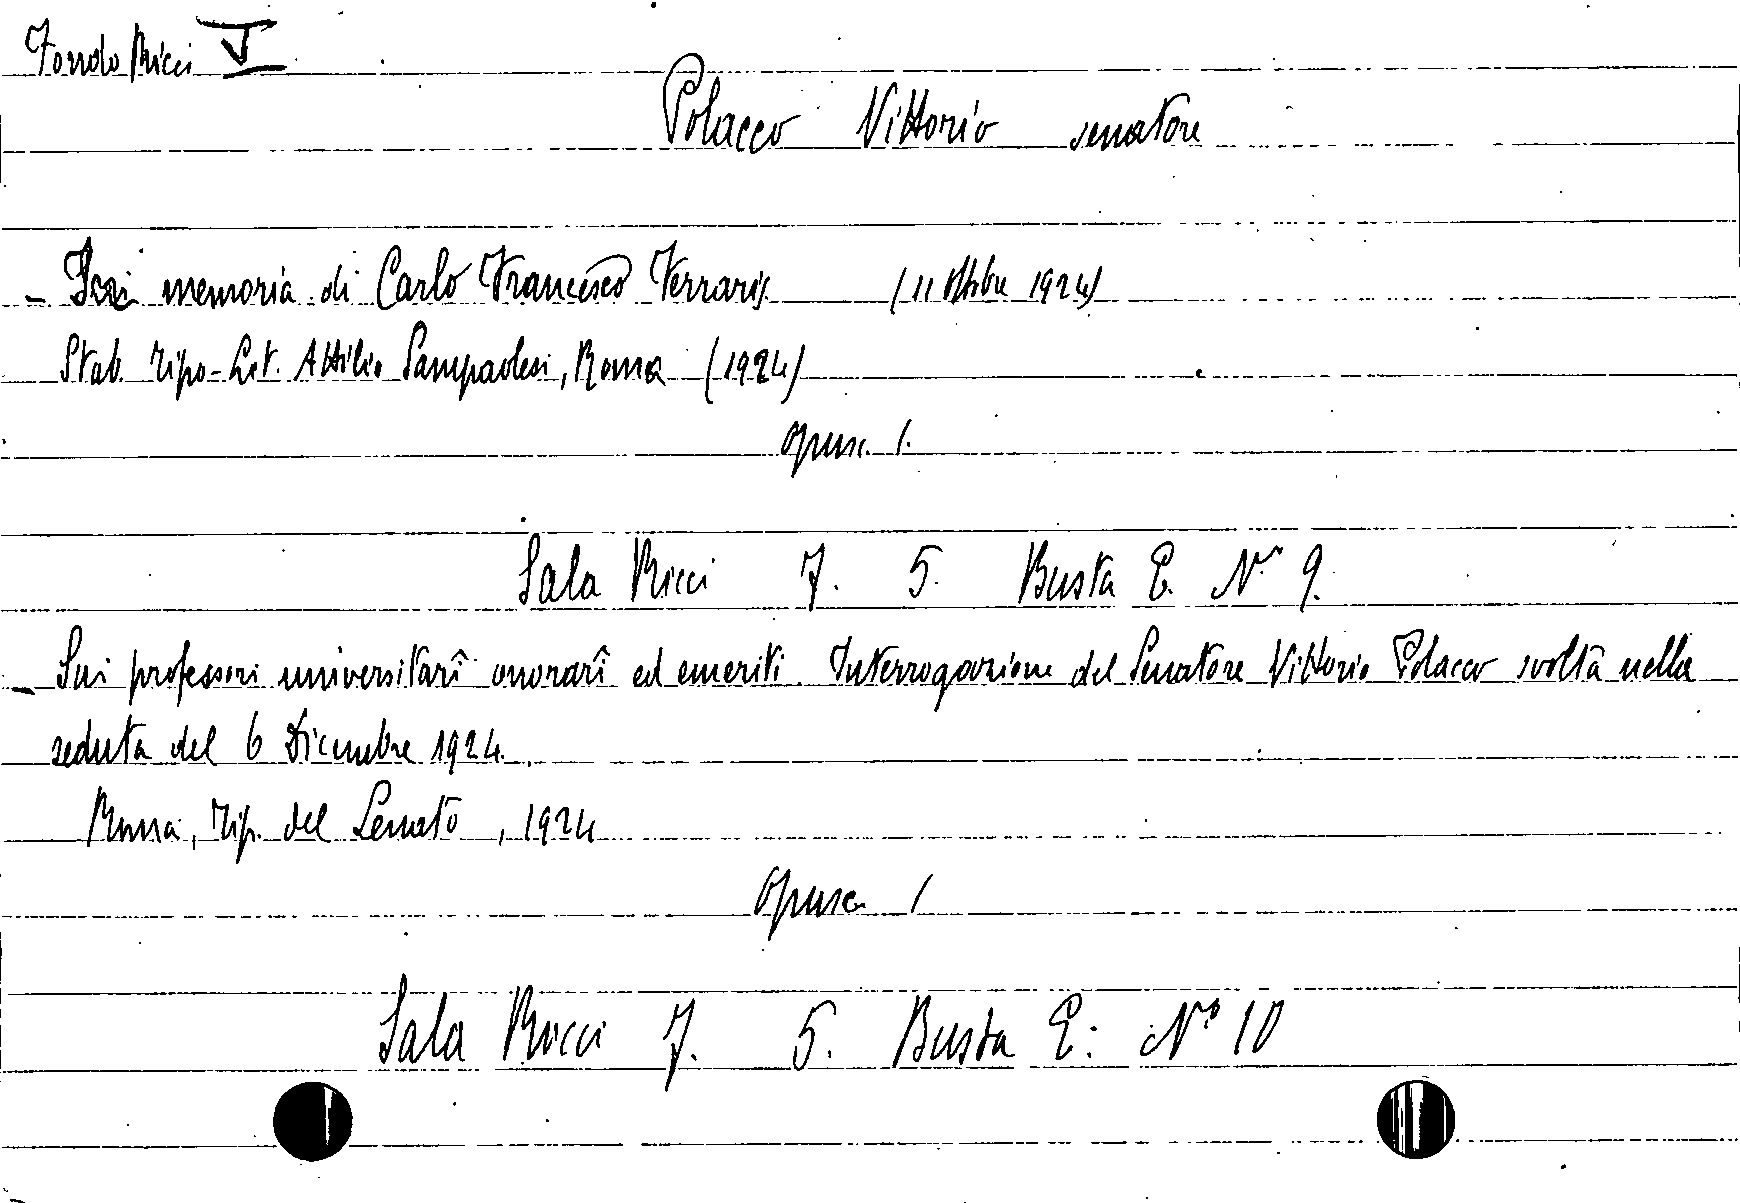 Fondo Ricci V
Polacco Vittorio senatore
- In memoria di Carlo Francesco Ferraris (11 Ottobre 1924)
Stab. Tipo-Lit. Attilio Sampaolesi, Roma (1924)
opusc. 1.
Sala Ricci 7. 5. Busta E. N° 9.
- Sui professori universitarî onorarî ed emeriti. Interrogazione del Senatore Vittorio Polacco svolta nella
seduta del 6 Dicembre 1924.
Roma, Tip. del Senato, 1924
opusc. 1
Sala Ricci 7. 5. Busta E. N° 10